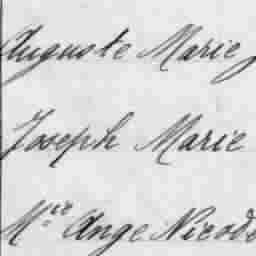 Auguste Marie
Joseph Marie
Mie Ange Nicod